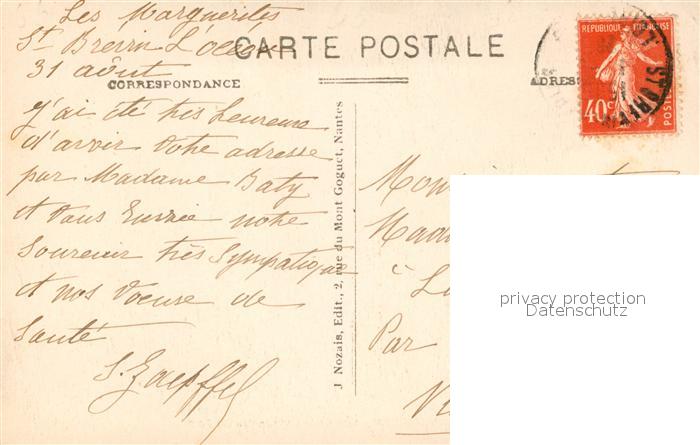 Les Marguerites
St Brevin L'Océan
31 août
CARTE POSTALE
CORRESPONDANCE
ADRES
REPUBLIQUE FRANÇAISE
40c
POSTES
J'ai été très heureux
d'avoir votre adresse
par Madame Baty
et vous envoie notre
souvenir très sympatique
et nos voeux de
santé
J Nozais, Edit., 2, rue du Mont Goguet, Nantes
à
Par
privacy protection
Datenschutz